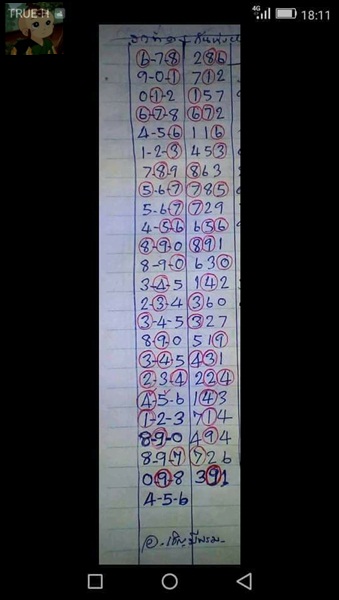 TRUE-H 4G 18:11
6-7-8 286
9-0-1 712
0-1-2 157
6-7-8 672
4-5-6 116
1-2-3 453
7-8-9 863
5-6-7 785
5-6-7 729
4-5-6 656
8-9-0 891
8-9-0 630
3-4-5 142
2-3-4 360
3-4-5 327
8-9-0 519
3-4-5 431
2-3-4 224
4-5-6 143
1-2-3 714
8-9-0 494
8-9-7 726
0-9-8 391
4-5-6